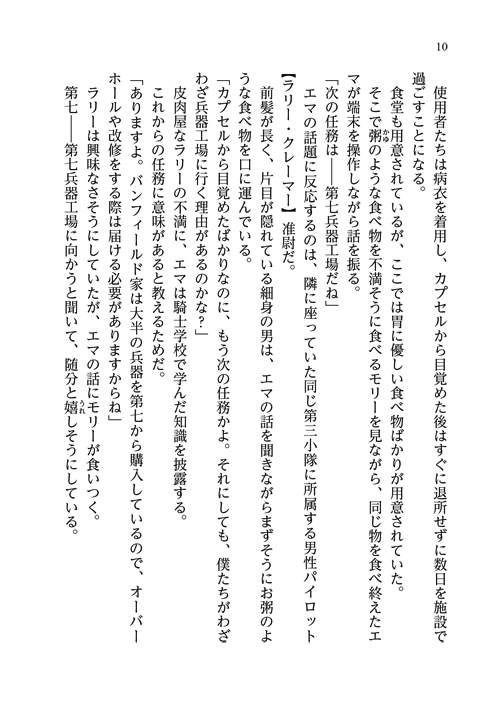 10
使用者たちは病衣を着用し、カプセルから目覚めた後はすぐに退所せずに数日を施設で
過ごすことになる。
食堂も用意されているが、ここでは胃に優しい食べ物ばかりが用意されていた。
そこで粥のような食べ物を不満そうに食べるモリーを見ながら、同じ物を食べ終えたエ
かゆ
マが端末を操作しながら話を振る。
「次の任務は――第七兵器工場だね」
エマの話題に反応するのは、隣に座っていた同じ第三小隊に所属する男性パイロット
【ラリー・クレーマー】准尉だ。
前髪が長く、片目が隠れている細身の男は、エマの話を聞きながらまずそうにお粥のよ
うな食べ物を口に運んでいる。
「カプセルから目覚めたばかりなのに、もう次の任務かよ。それにしても、僕たちがわざ
わざ兵器工場に行く理由があるのかな？」
皮肉屋なラリーの不満に、エマは騎士学校で学んだ知識を披露する。
これからの任務に意味があると教えるためだ。
「ありますよ。バンフィールド家は大半の兵器を第七から購入しているので、オーバー
ホールや改修をする際は届ける必要がありますからね」
ラリーは興味なさそうにしていたが、エマの話にモリーが食いつく。
第七――第七兵器工場に向かうと聞いて、随分と嬉しそうにしている。
うれ